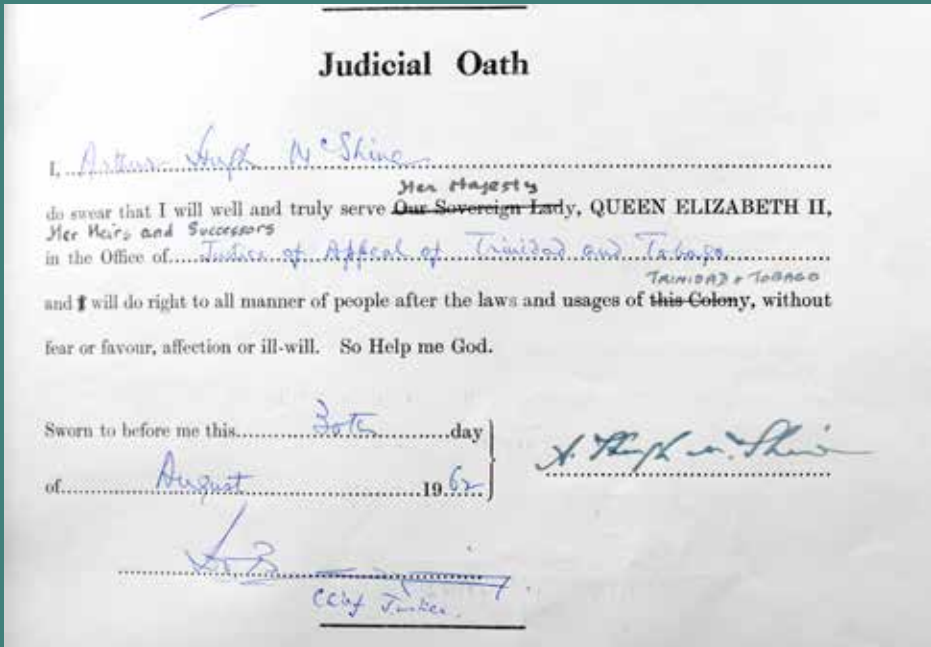 Judicial Oath
I, Arthur Hugh McShine
Her Majesty
do swear that I will well and truly serve Our Sovereign Lady, QUEEN ELIZABETH II,
Her Heirs and Successors
in the Office of Justice of Appeal of Trinidad and Tobago
TRINIDAD & TOBAGO
and I will do right to all manner of people after the laws and usages of this Colony, without
fear or favour, affection or ill-will. So Help me God.
Sworn to before me this 30th day
of August 1962
A. Hugh McShine
Chief Justice.